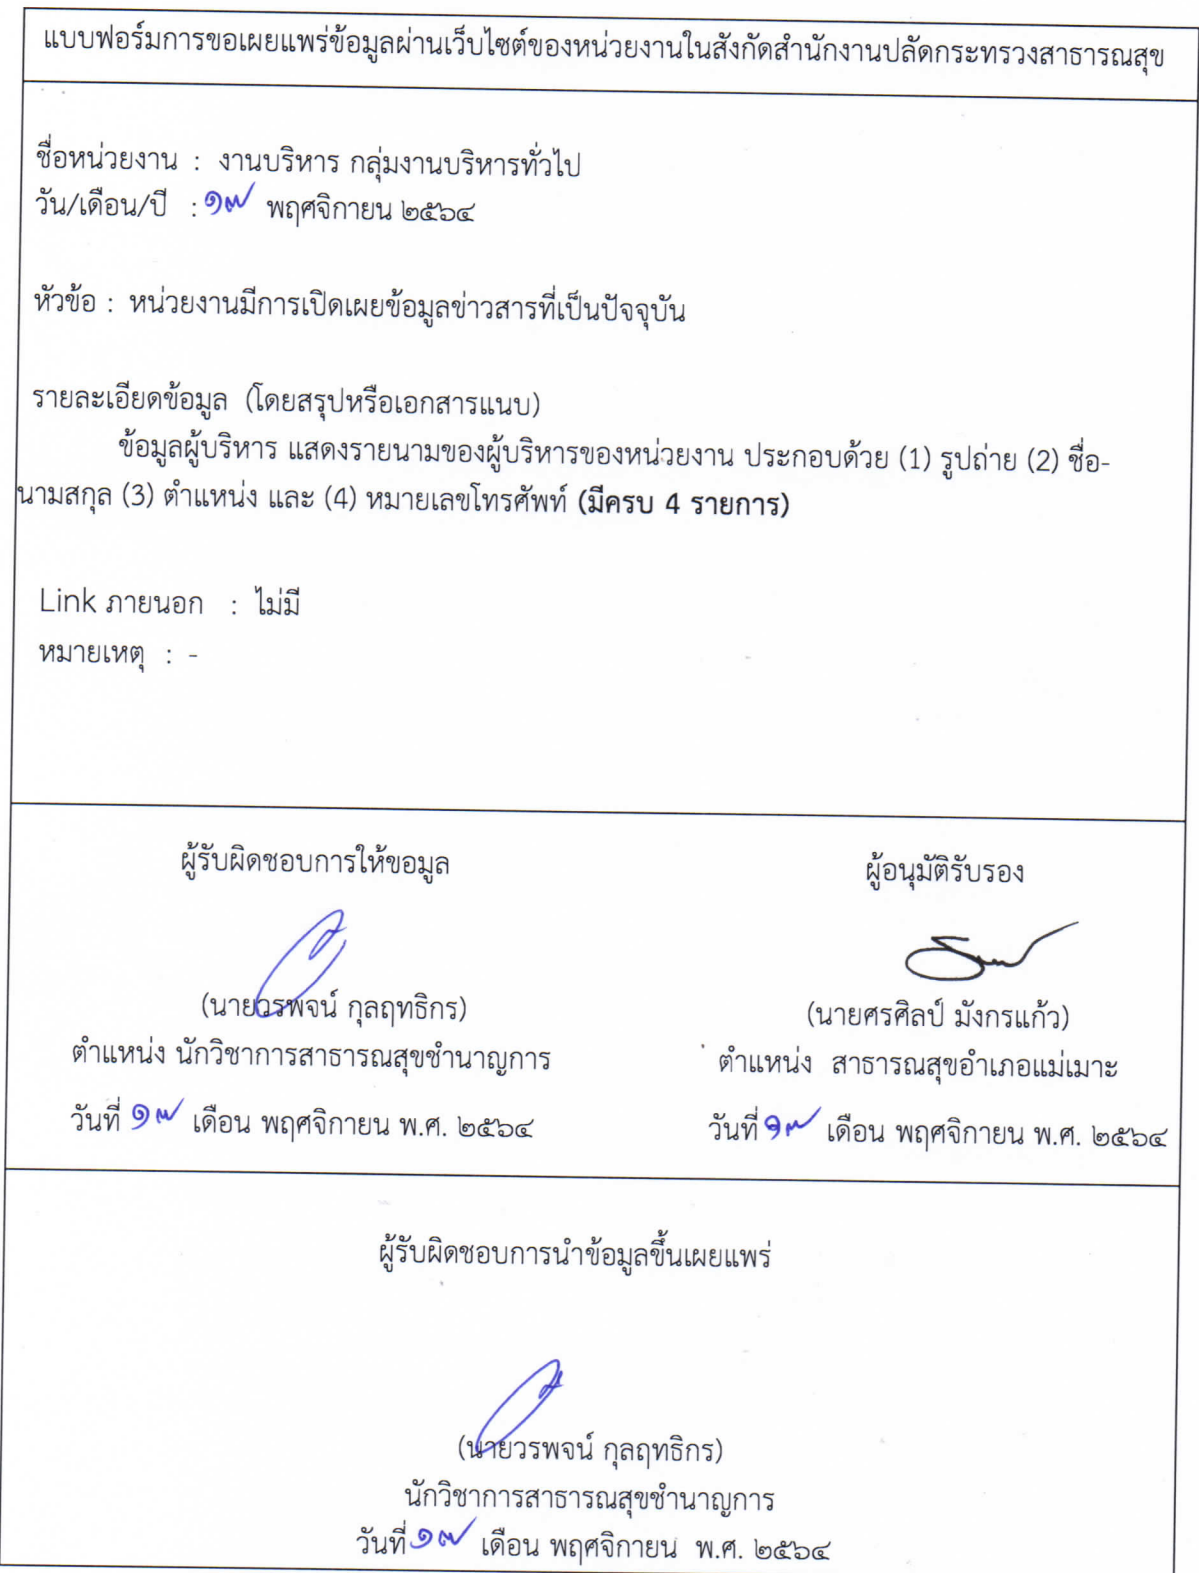 แบบฟอร์มการขอเผยแพร่ข้อมูลผ่านเว็บไซต์ของหน่วยงานในสังกัดสำนักงานปลัดกระทรวงสาธารณสุข
ชื่อหน่วยงาน : งานบริหาร กลุ่มงานบริหารทั่วไป
วัน/เดือน/ปี : ๑๗ พฤศจิกายน ๒๕๖๔
หัวข้อ : หน่วยงานมีการเปิดเผยข้อมูลข่าวสารที่เป็นปัจจุบัน
รายละเอียดข้อมูล (โดยสรุปหรือเอกสารแนบ)
ข้อมูลผู้บริหาร แสดงรายนามของผู้บริหารของหน่วยงาน ประกอบด้วย (1) รูปถ่าย (2) ชื่อ-
นามสกุล (3) ตำแหน่ง และ (4) หมายเลขโทรศัพท์ (มีครบ 4 รายการ)
Link ภายนอก : ไม่มี
หมายเหตุ : -
ผู้รับผิดชอบการให้ขอมูล
ผู้อนุมัติรับรอง
(นายวรพจน์ กุลฤทธิกร)
(นายศรศิลป์ มังกรแก้ว)
ตำแหน่ง นักวิชาการสาธารณสุขชำนาญการ
ตำแหน่ง สาธารณสุขอำเภอแม่เมาะ
วันที่ ๑๗ เดือน พฤศจิกายน พ.ศ. ๒๕๖๔
วันที่ ๑๗ เดือน พฤศจิกายน พ.ศ. ๒๕๖๔
ผู้รับผิดชอบการนำข้อมูลขึ้นเผยแพร่
(นายวรพจน์ กุลฤทธิกร)
นักวิชาการสาธารณสุขชำนาญการ
วันที่ ๑๗ เดือน พฤศจิกายน พ.ศ. ๒๕๖๔